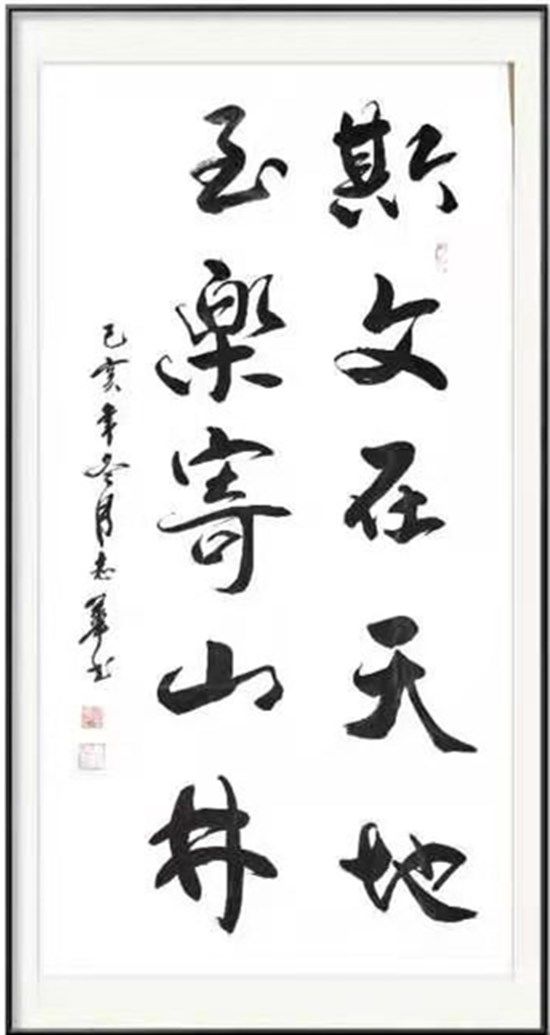 斯文在天地
至樂寄山林
己亥年冬月志華书